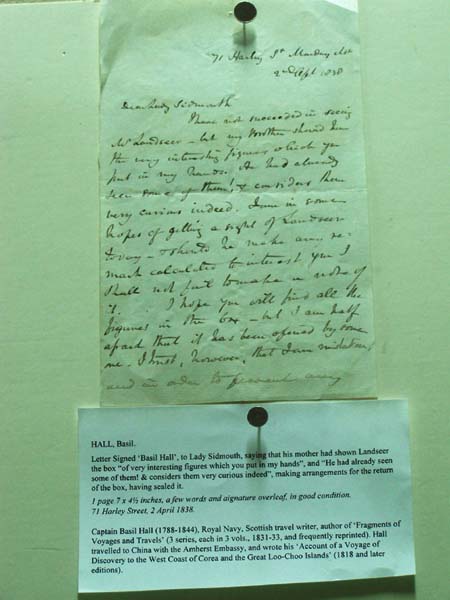 71 Harley St Monday
2nd Apl 1838
Dear Lady Sidmouth
I have not succeeded in seeing
Mr Landseer - but my brother showed him
the very interesting figures which you
put in my hands. He had already
seen some of them! & considers them
very curious indeed. I am in some
hopes of getting a sight of Landseer
today - & should he make any re-
mark calculated to interest you I
shall not fail to make a note of
it. I hope you will find all the
figures in the box - but I am half
afraid that it has been opened by some
one. I trust, however, that I am mistaken,
and in order to prevent any
HALL, Basil.
Letter Signed 'Basil Hall', to Lady Sidmouth, saying that his mother had shown Landseer
the box "of very interesting figures which you put in my hands", and "He had already seen
some of them! & considers them very curious indeed", making arrangements for the return
of the box, having sealed it.
1 page 7 x 4½ inches, a few words and aignature overleaf, in good condition.
71 Harley Street, 2 April 1838.
Captain Basil Hall (1788-1844), Royal Navy, Scottish travel writer, author of 'Fragments of
Voyages and Travels' (3 series, each in 3 vols., 1831-33, and frequently reprinted). Hall
travelled to China with the Amherst Embassy, and wrote his 'Account of a Voyage of
Discovery to the West Coast of Corea and the Great Loo-Choo Islands' (1818 and later
editions).